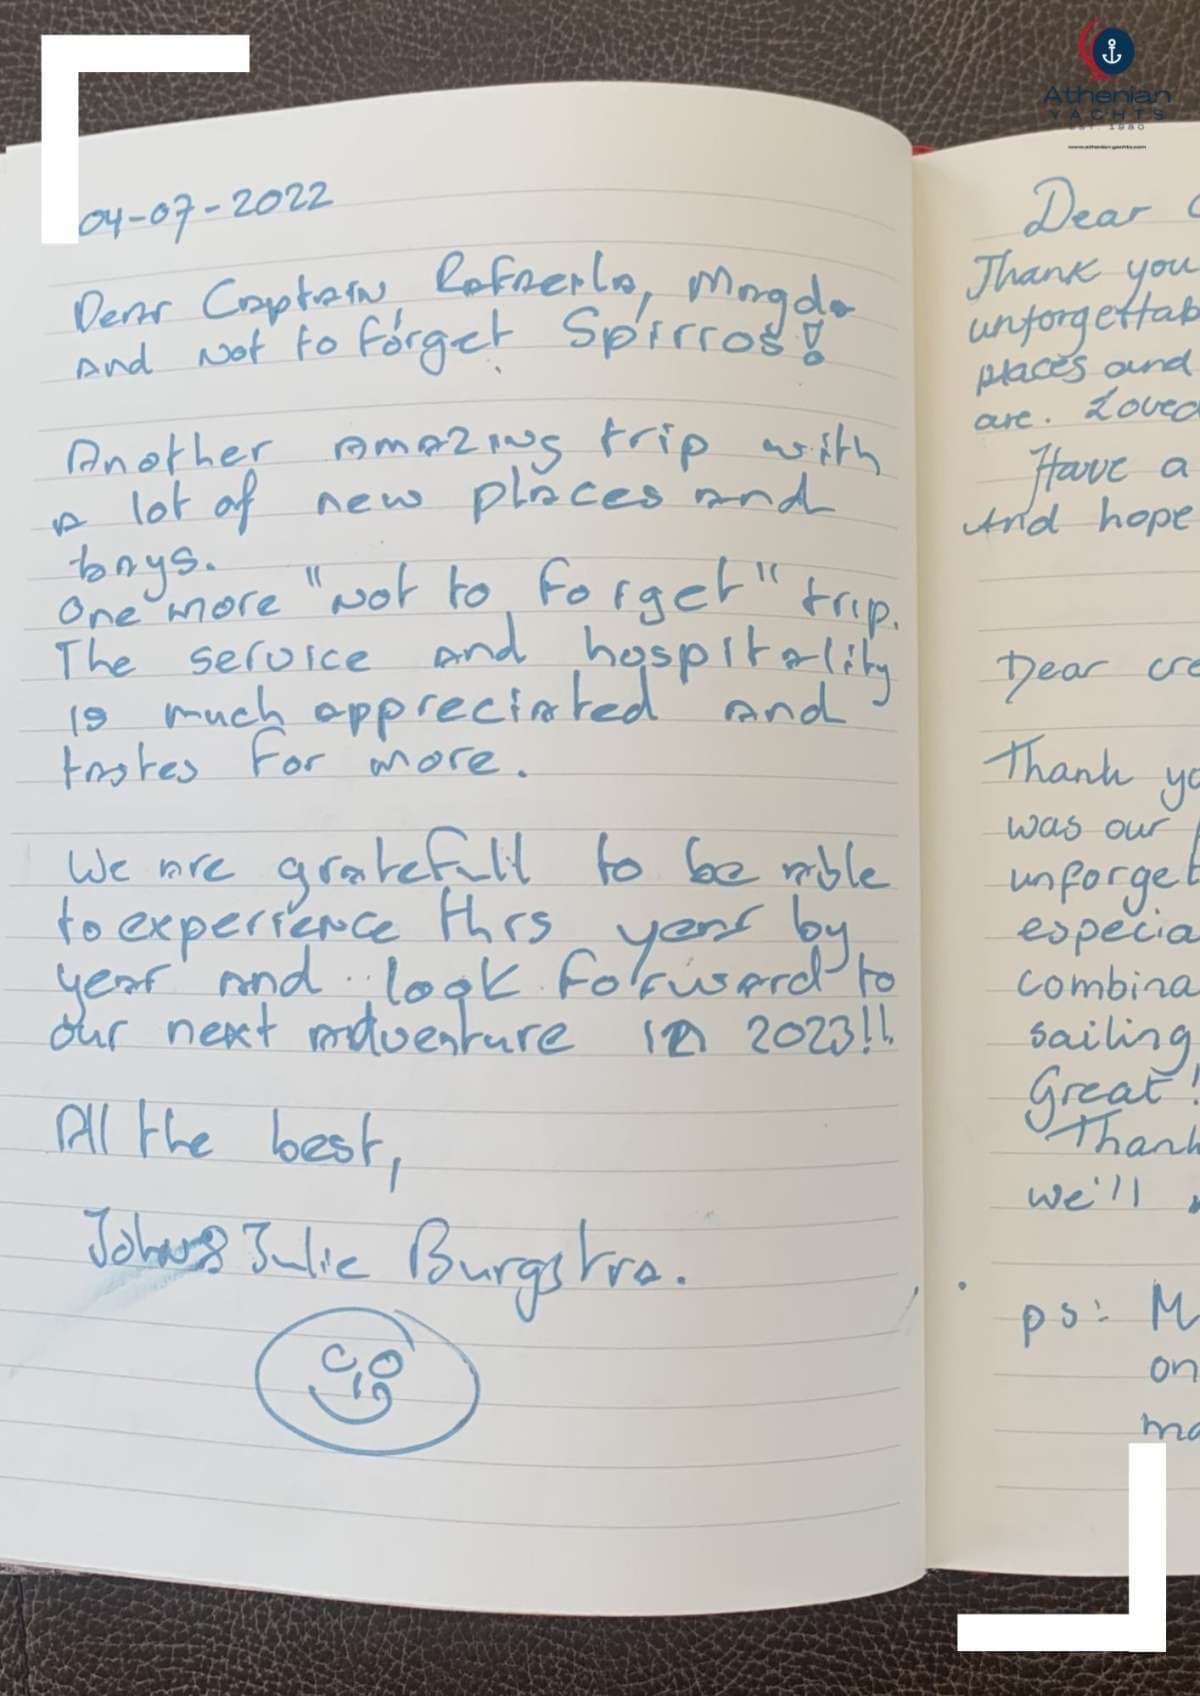 Athenian
YACHTS
EST. 1980
www.athenian-yachts.com
04-07-2022
Dear Captain Rafaella, Magda
and not to forget Spirros!
Another amazing trip with
a lot of new places and
bays.
One more "not to forget" trip.
The service and hospitality
is much appreciated and
tastes for more.
We are gratefull to be able
to experience this year by
year and look forward to
our next adventure in 2023!!
All the best,
John & Julie Burgstra.
Dear
Thank you
unforgettab
places and
are. Loved
Have a
And hope
Dear cre
Thank yo
was our
unforget
especia
combina
sailing
Great!
Thank
we'll
ps: M
on
ma